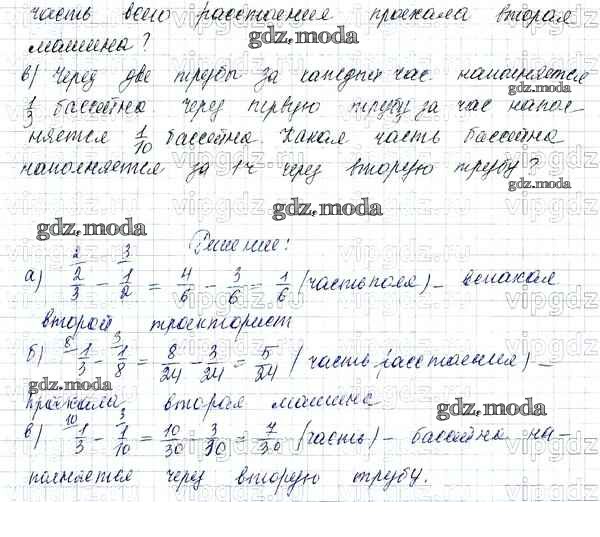 часть всего расстояния проехала вторая
машина?
gdz.moda
в) Через две трубы за каждый час наполняется
1/3 бассейна через первую трубу за час напол-
няется 1/10 бассейна. Какая часть бассейна
наполняется за 1 ч через вторую трубу?
gdz.moda
gdz.moda
gdz.moda
gdz.moda
Решение:
а) 2/3 - 1/2 = 4/6 - 3/6 = 1/6 (часть поля) - вспахал
второй тракторист
б) 1/3 - 1/8 = 8/24 - 3/24 = 5/24 (часть расстояния) -
gdz.moda
проехала вторая машина
gdz.moda
в) 1/3 - 1/10 = 10/30 - 3/30 = 7/30 (часть) - бассейна на-
полняется через вторую трубу.